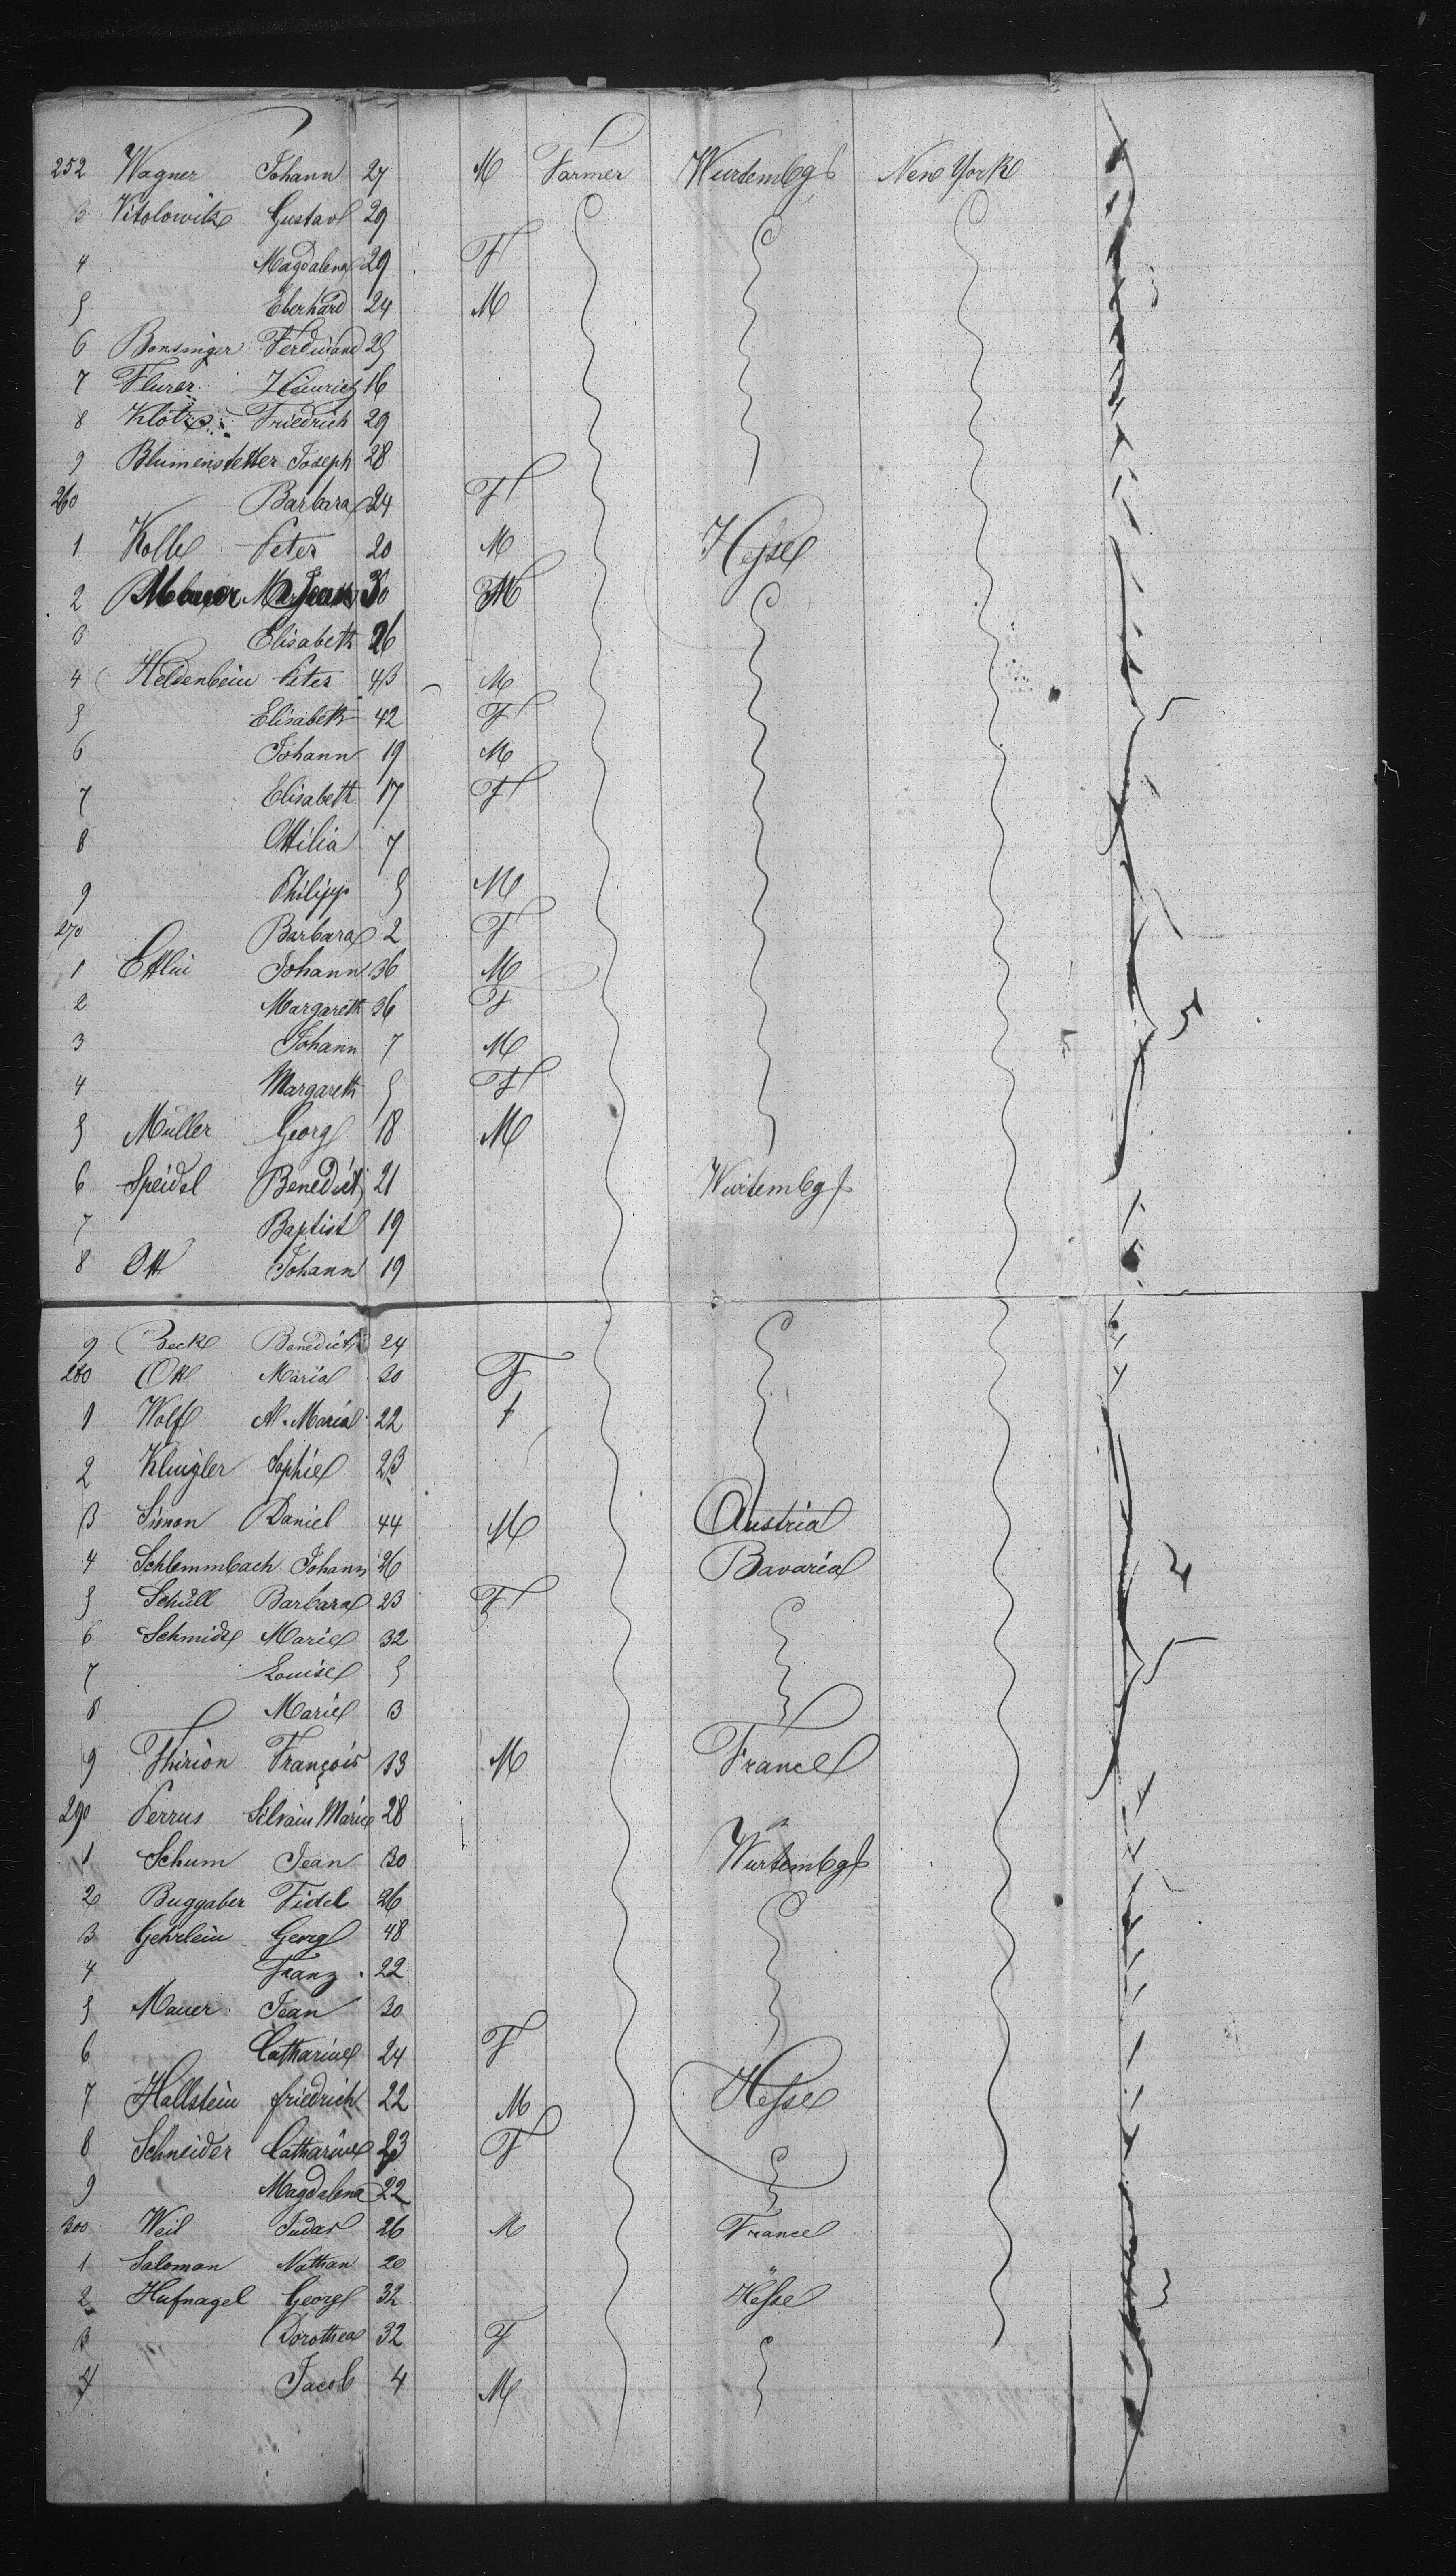 252 Wagner Johann 27 M Farmer Wurtembg New York
3 Vitolowitz Gustav 29
4 Magdalena 29 F
5 Eberhard 24 M
6 Bonsinger Ferdinand 25
7 Flurer Heinrich 16
8 Klotz Friedrich 29
9 Blumenstetter Joseph 28
260 Barbara 24 F
1 Kolb Peter 20 M Hesse
2 30 M
3 Elisabeth 26
4 Heldenbein Peter 43 M
5 Elisabeth 42 F
6 Johann 19 M
7 Elisabeth 17 F
8 Ottilia 7
9 Philipp 5 M
270 Barbara 2 F
1 Ettlin Johann 36 M
2 Margareth 36 F
3 Johann 7 M
4 Margareth 5 F
5 Müller Georg 18 M
6 Speidel Benedict 21 Wurtembg
7 Baptist 19
8 Ott Johann 19
9 Beck Benedict 24
280 Ott Maria 30 F
1 Wolf A. Maria 22 f
2 Klingler Sophie 23
3 Simon Daniel 44 M Austria
4 Schlemmbach Johann 26 Bavaria
5 Schüll Barbara 23 F
6 Schmidt Marie 32
7 Louise 5
8 Marie 3
9 Thirion François 33 M France
290 Perrus Silvain Marie 28
1 Schum Jean 30 Wurtembg
2 Buggaber Fidel 26
3 Gehrlein Georg 48
4 Franz 22
5 Mauer Jean 30
6 Catharine 24 F
7 Hallstein friedrich 22 M Hesse
8 Schneider Catharine 23 F
9 Magdalena 22
300 Weil Judas 26 M France
1 Salomon Nathan 20 "
2 Hufnagel Georg 32 Hesse
3 Dorothea 32 F
4 Jacob 4 M